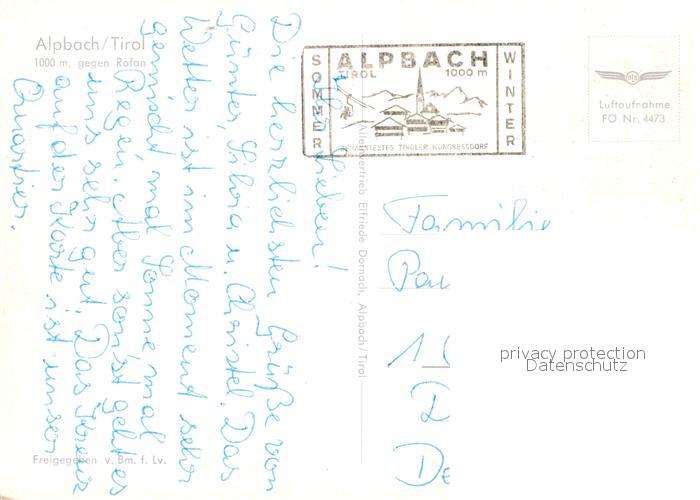 Alpbach/Tirol
1000 m, gegen Rofan
SOMMER
ALPBACH
TIROL 1000 m
WINTER
BEKANNTESTES TIROLER KONGRESSDORF
Luftaufnahme
FO Nr. 4473
Ihr Lieben!
Die herzlichsten Grüße von
Günter, Silvia u. Christel. Das
Wetter ist im Moment sehr
gemischt mal Sonne mal
Regen. Aber sonst geht es
uns sehr gut. Das Kreuz
auf der Karte ist unser
Quartier.
Alleinvertrieb Elfriede Dornach, Alpbach/Tirol
Familie
Pau
1
D
De
privacy protection
Datenschutz
Freigegeben v. Bm. f. Lv.